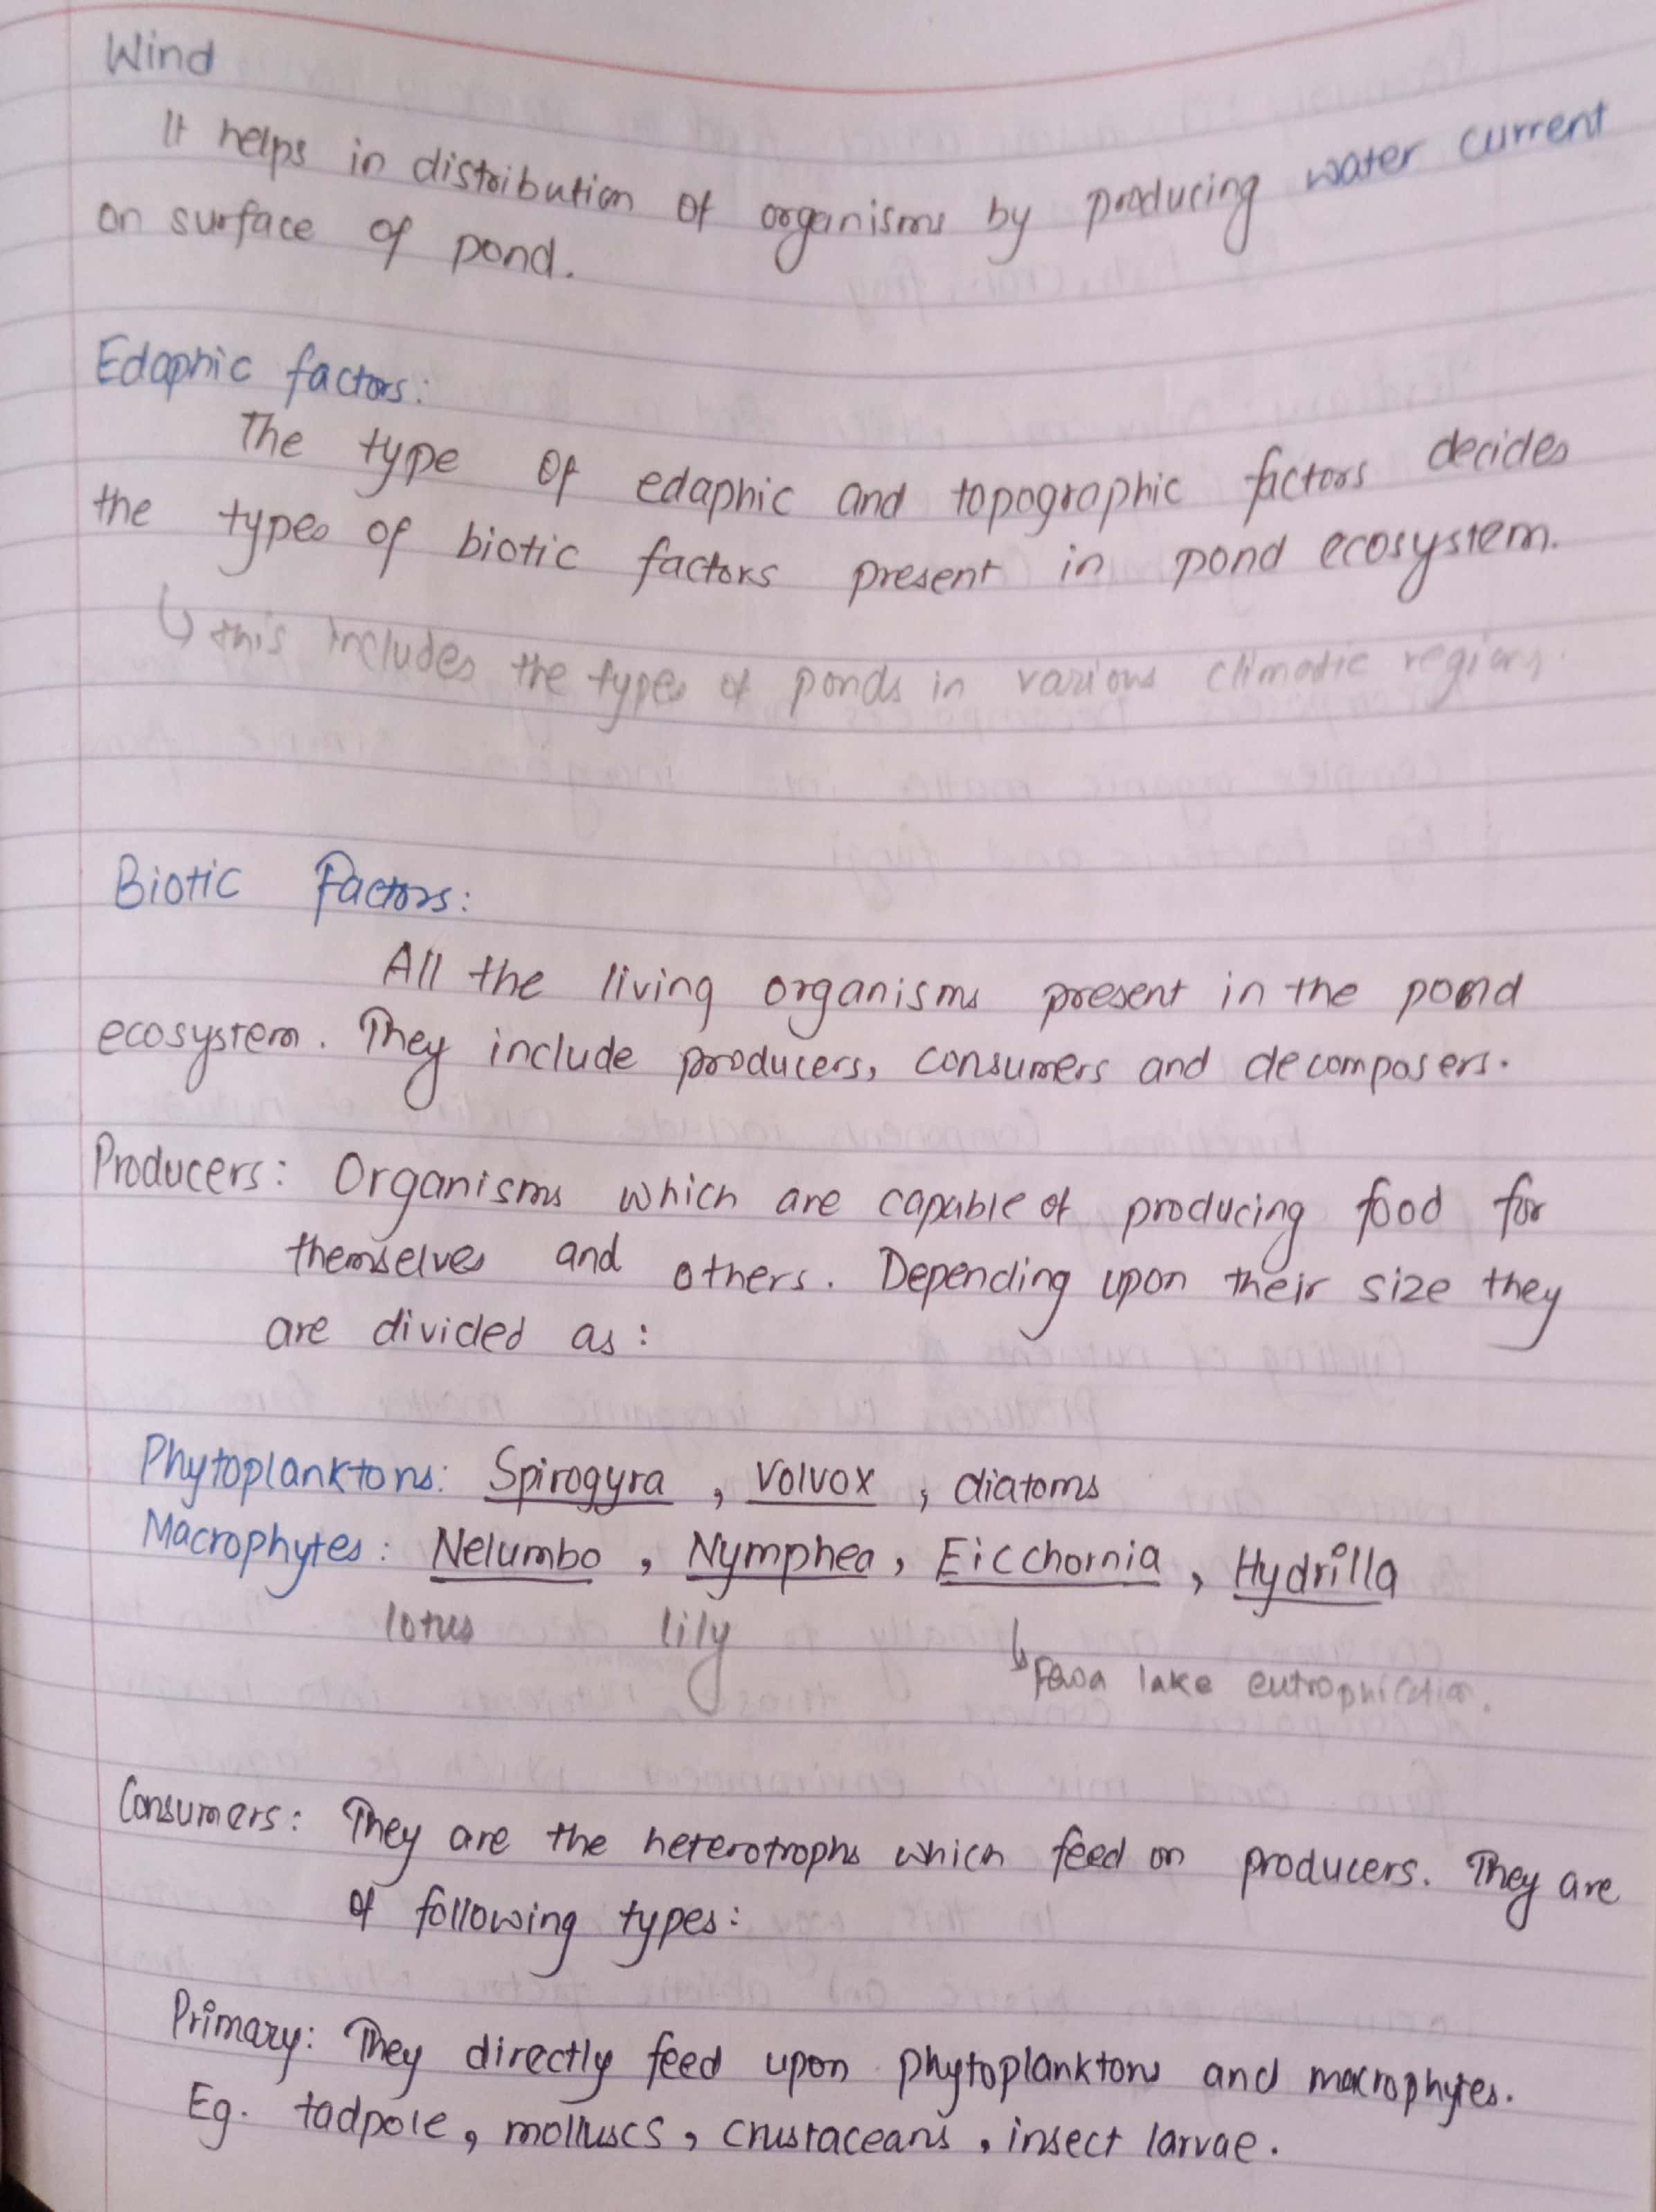 Wind
It helps in distribution of organisms by producing water current
on surface of pond.
Edaphic factors:
The type of edaphic and topographic factors decides
the types of biotic factors present in pond ecosystem.
↳ this includes the types of ponds in various climatic regions.
Biotic Factors:
All the living organisms present in the pond
ecosystem. They include producers, consumers and decomposers.
Producers: Organisms which are capable of producing food for
themselves and others. Depending upon their size they
are divided as:
Phytoplanktons: Spirogyra, Volvox, diatoms
Macrophytes: Nelumbo, Nymphea, Eicchornia, Hydrilla
lotus lily
↳ Fewa lake eutrophication.
Consumers: They are the heterotrophs which feed on producers. They are
of following types:
Primary: They directly feed upon phytoplanktons and macrophytes.
Eg. tadpole, molluscs, crustaceans, insect larvae.